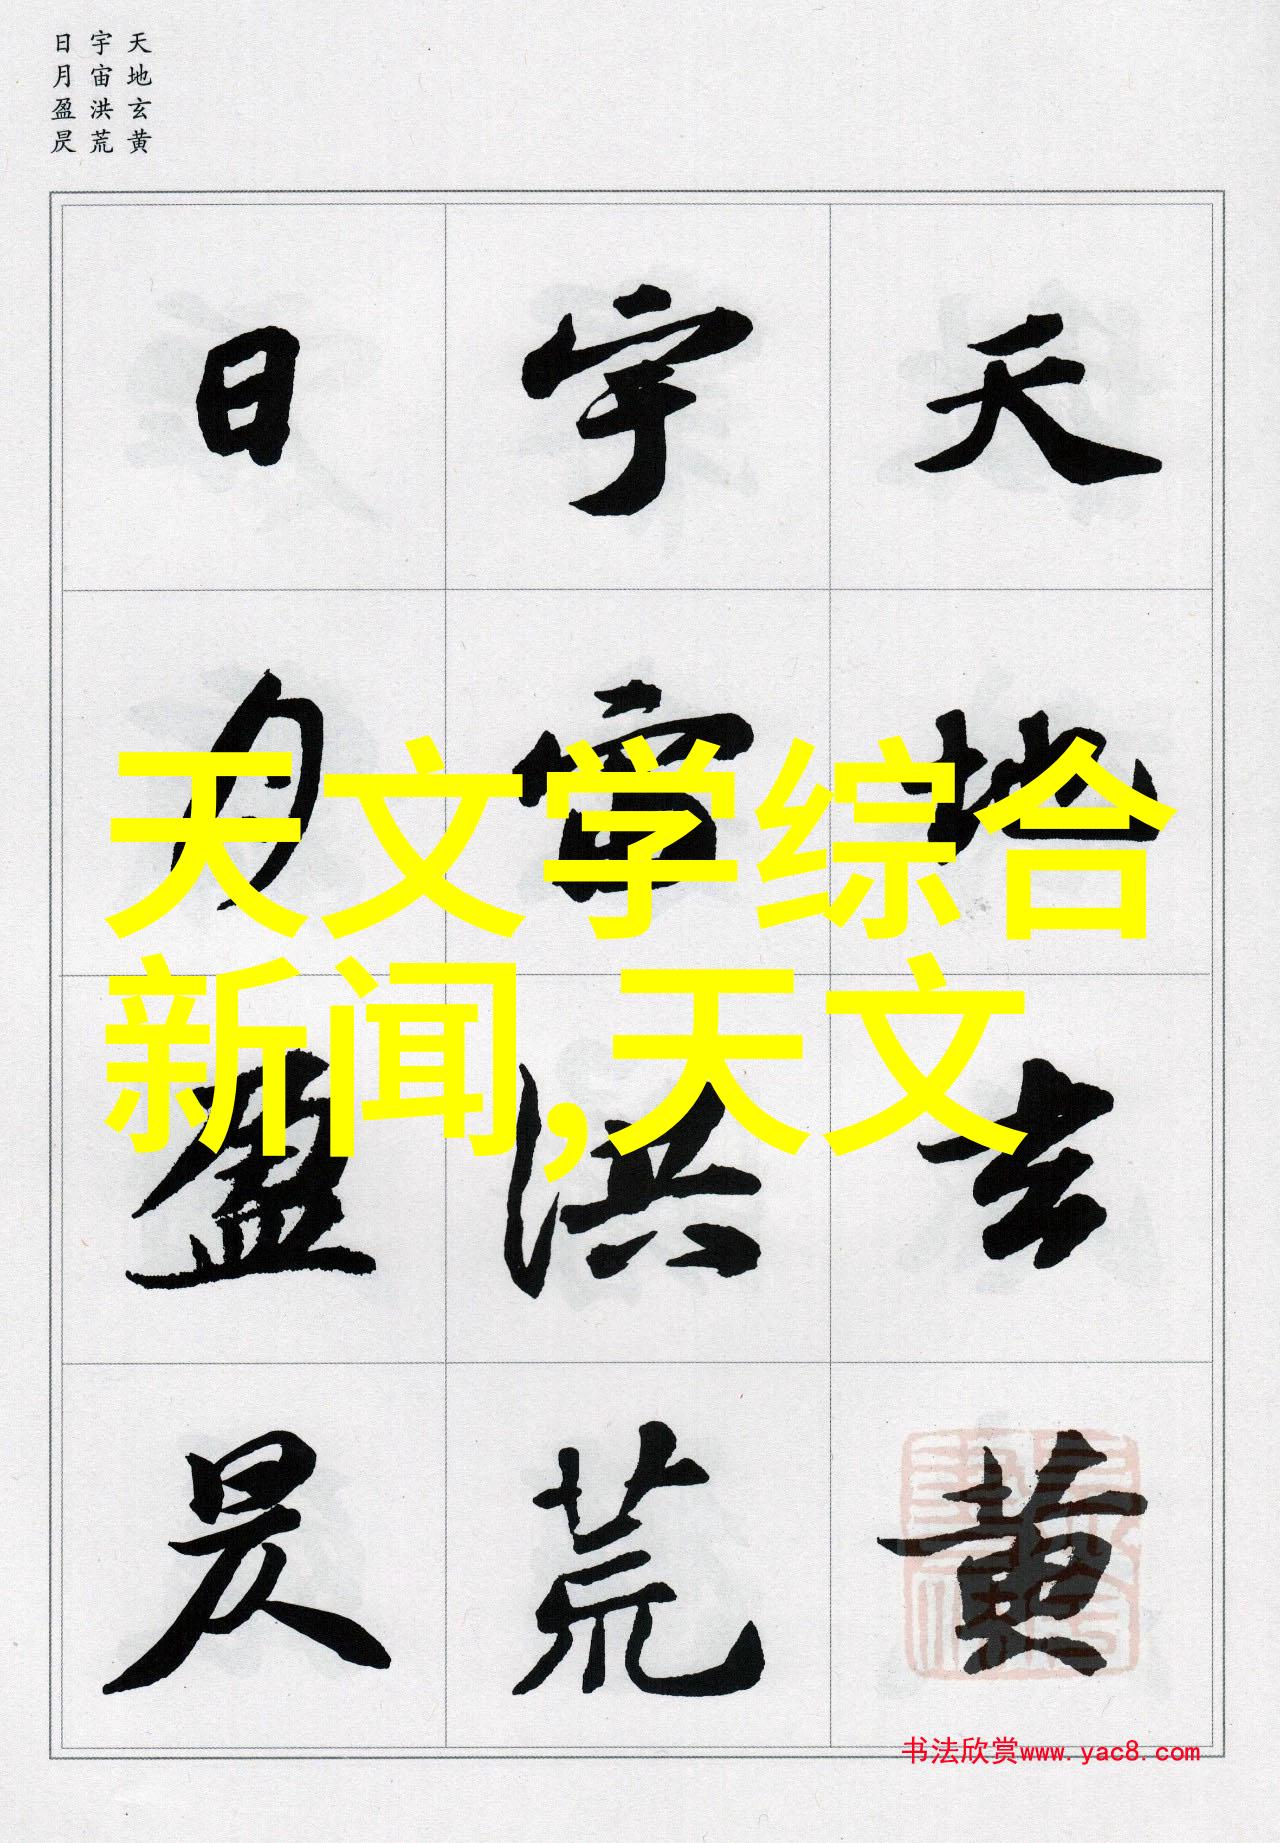 天地玄黄
宇宙洪荒
日月盈昃
天地玄黄
宇宙洪荒
日月盈昃
天文学综合
新闻,天文
书法欣赏www.yac8.com